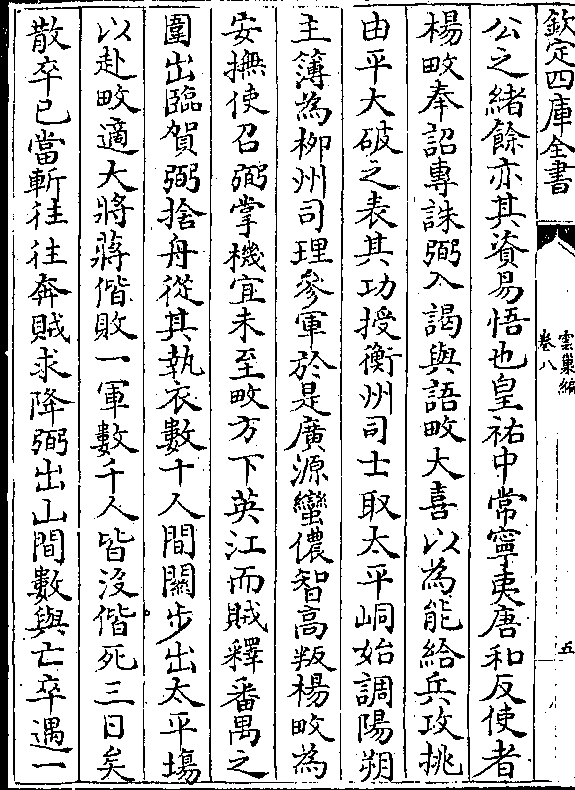 欽定四庫全書
雲巢編
卷八
五
公之緒餘亦其資易悟也皇祐中常寧夷唐和反使者
楊畋奉詔專誅弼入謁與語畋大喜以為能給兵攻挑
由平大破之表其功授衡州司士取太平峒始調陽朔
主簿為柳州司理參軍於是廣源蠻儂智高叛楊畋為
安撫使召弼掌機宜未至畋方下英江而賊釋番禺之
圍出臨賀弼捨舟從其執衣數十人間關步出太平場
以赴畋適大將蔣偕敗一軍數千人皆沒偕死三日矣
散卒已當斬往往奔賊求降弼出山間數與亡卒遇一